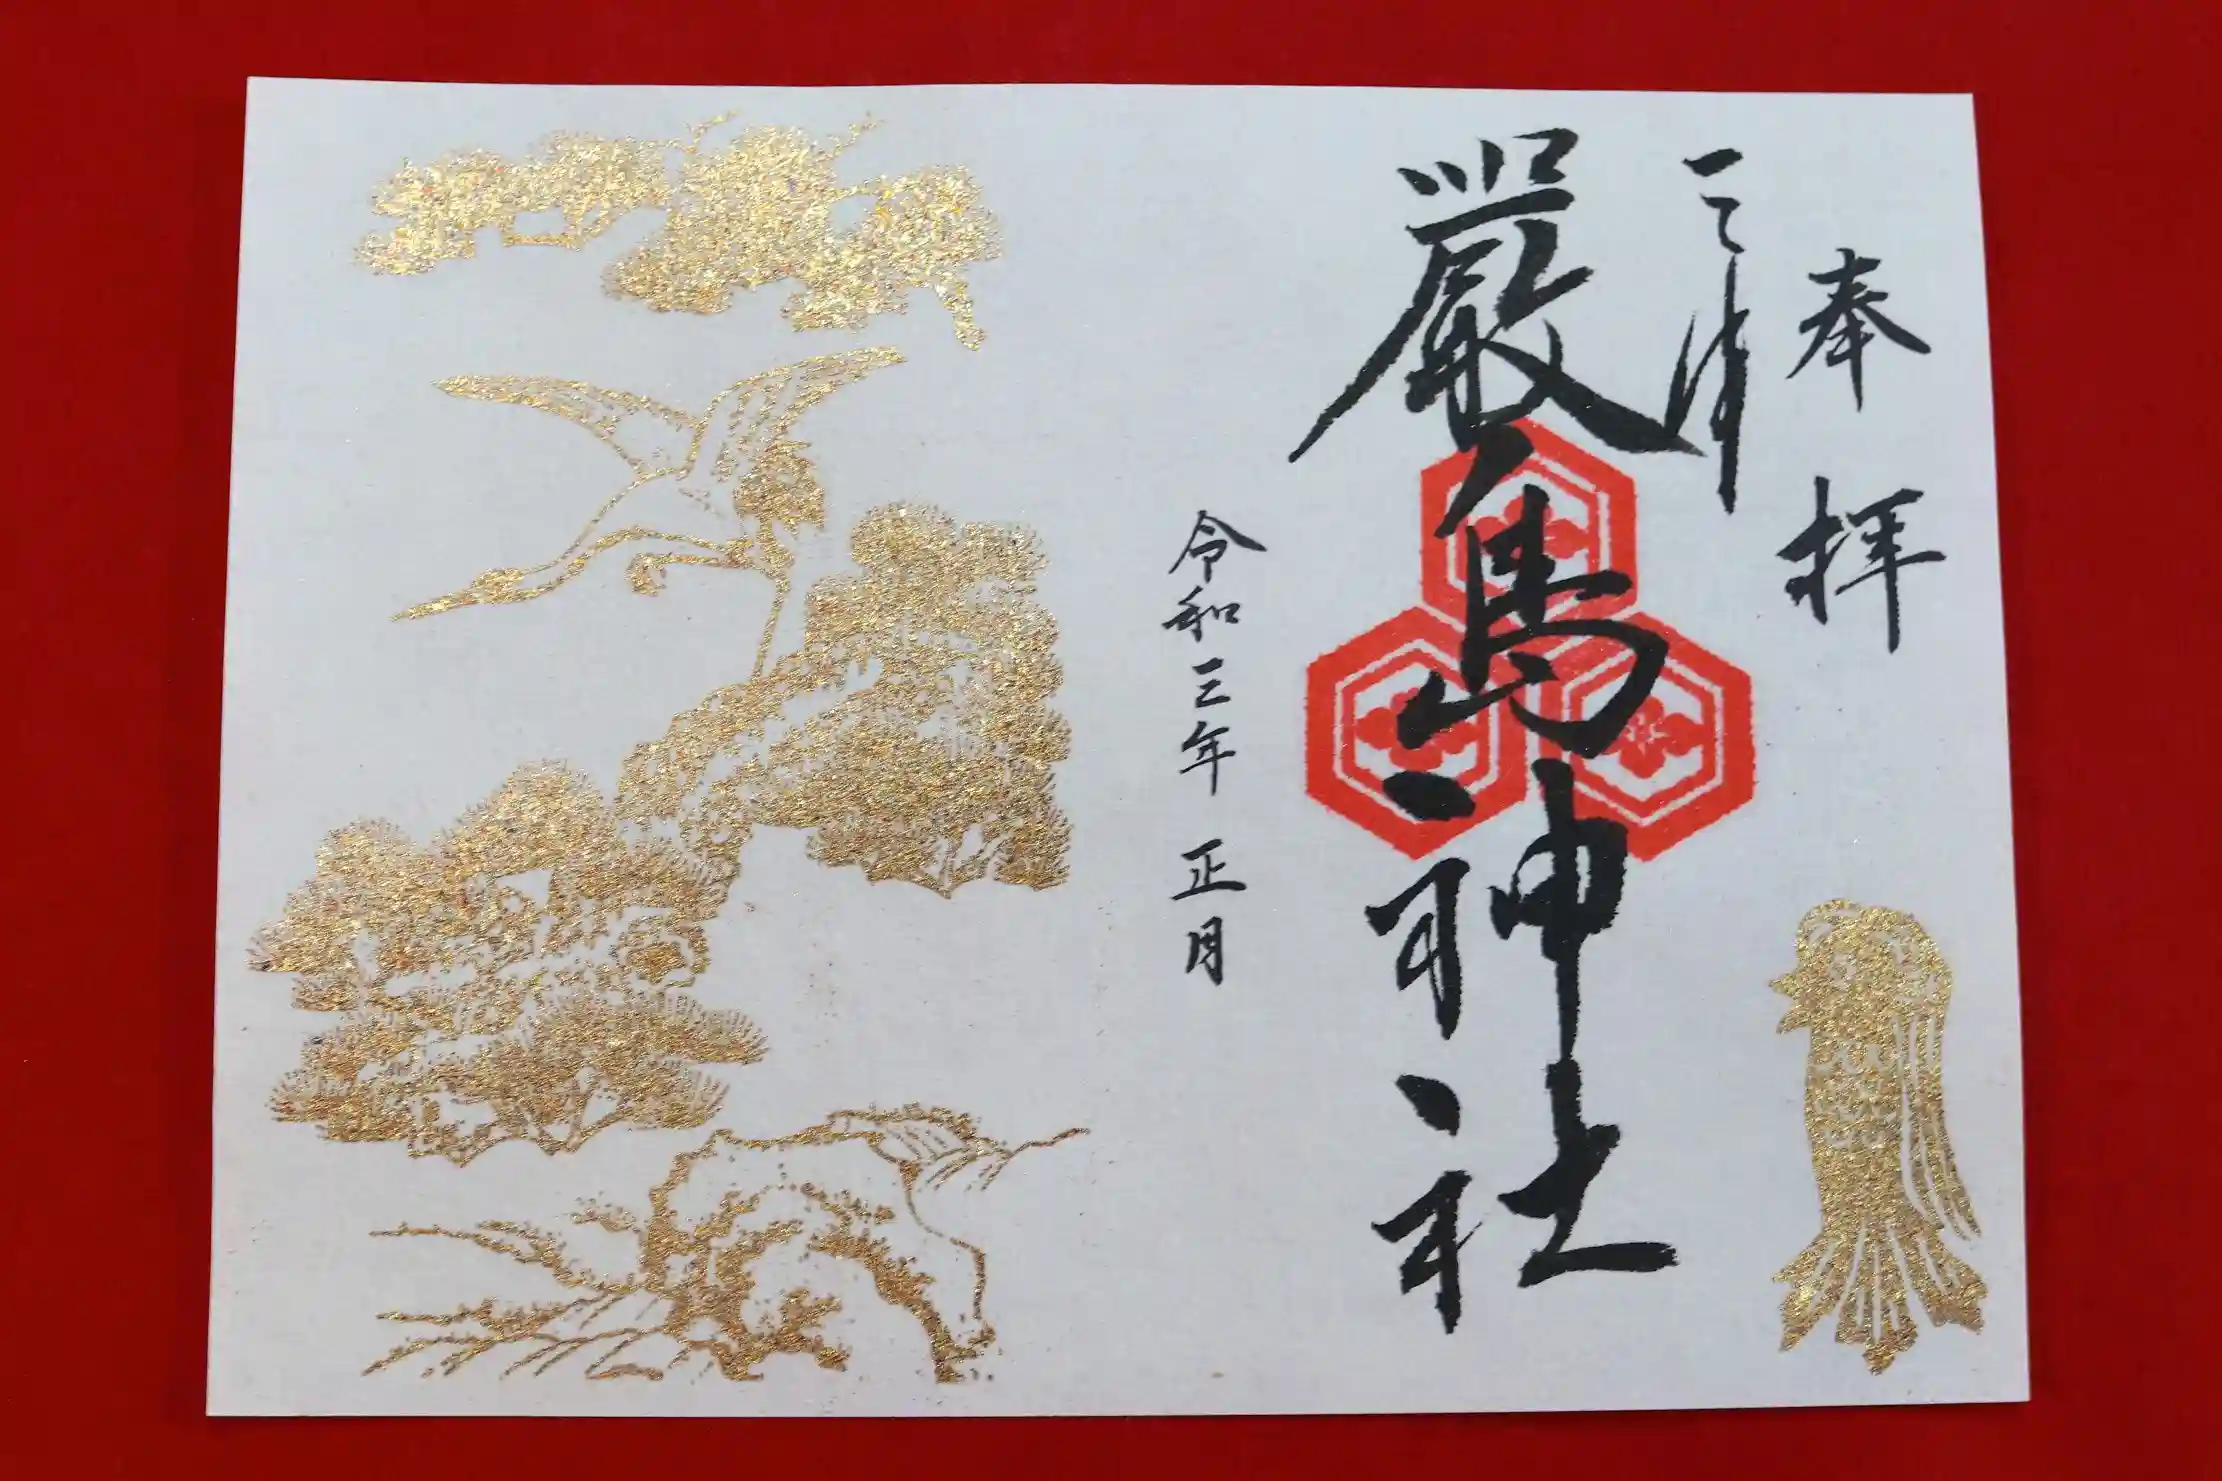 奉拝
三津
嚴島神社
令和三年 正月